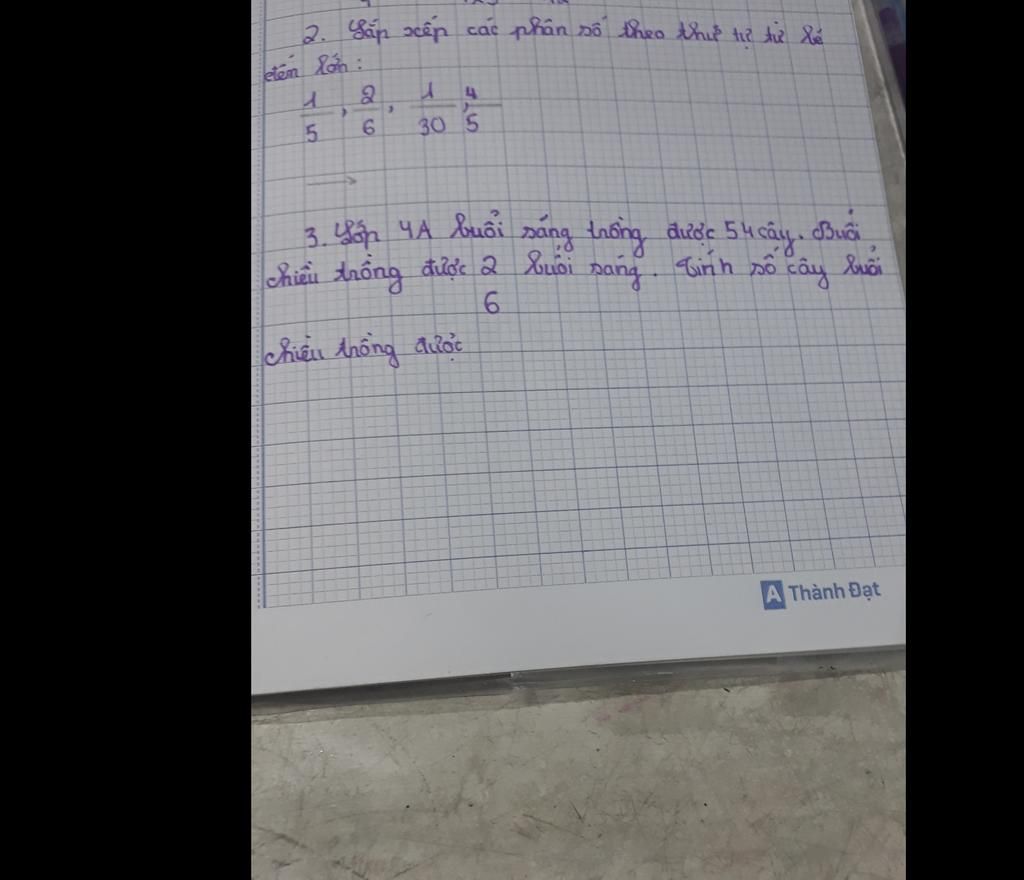 2. Sắp xếp các phân số theo thứ tự từ bé
đến lớn:
1/5, 2/6, 1/30, 4/5
→
3. Lớp 4A buổi sáng trồng được 54 cây. Buổi
chiều trồng được 2/6 buổi sáng. Tính số cây buổi
chiều trồng được
A Thành Đạt